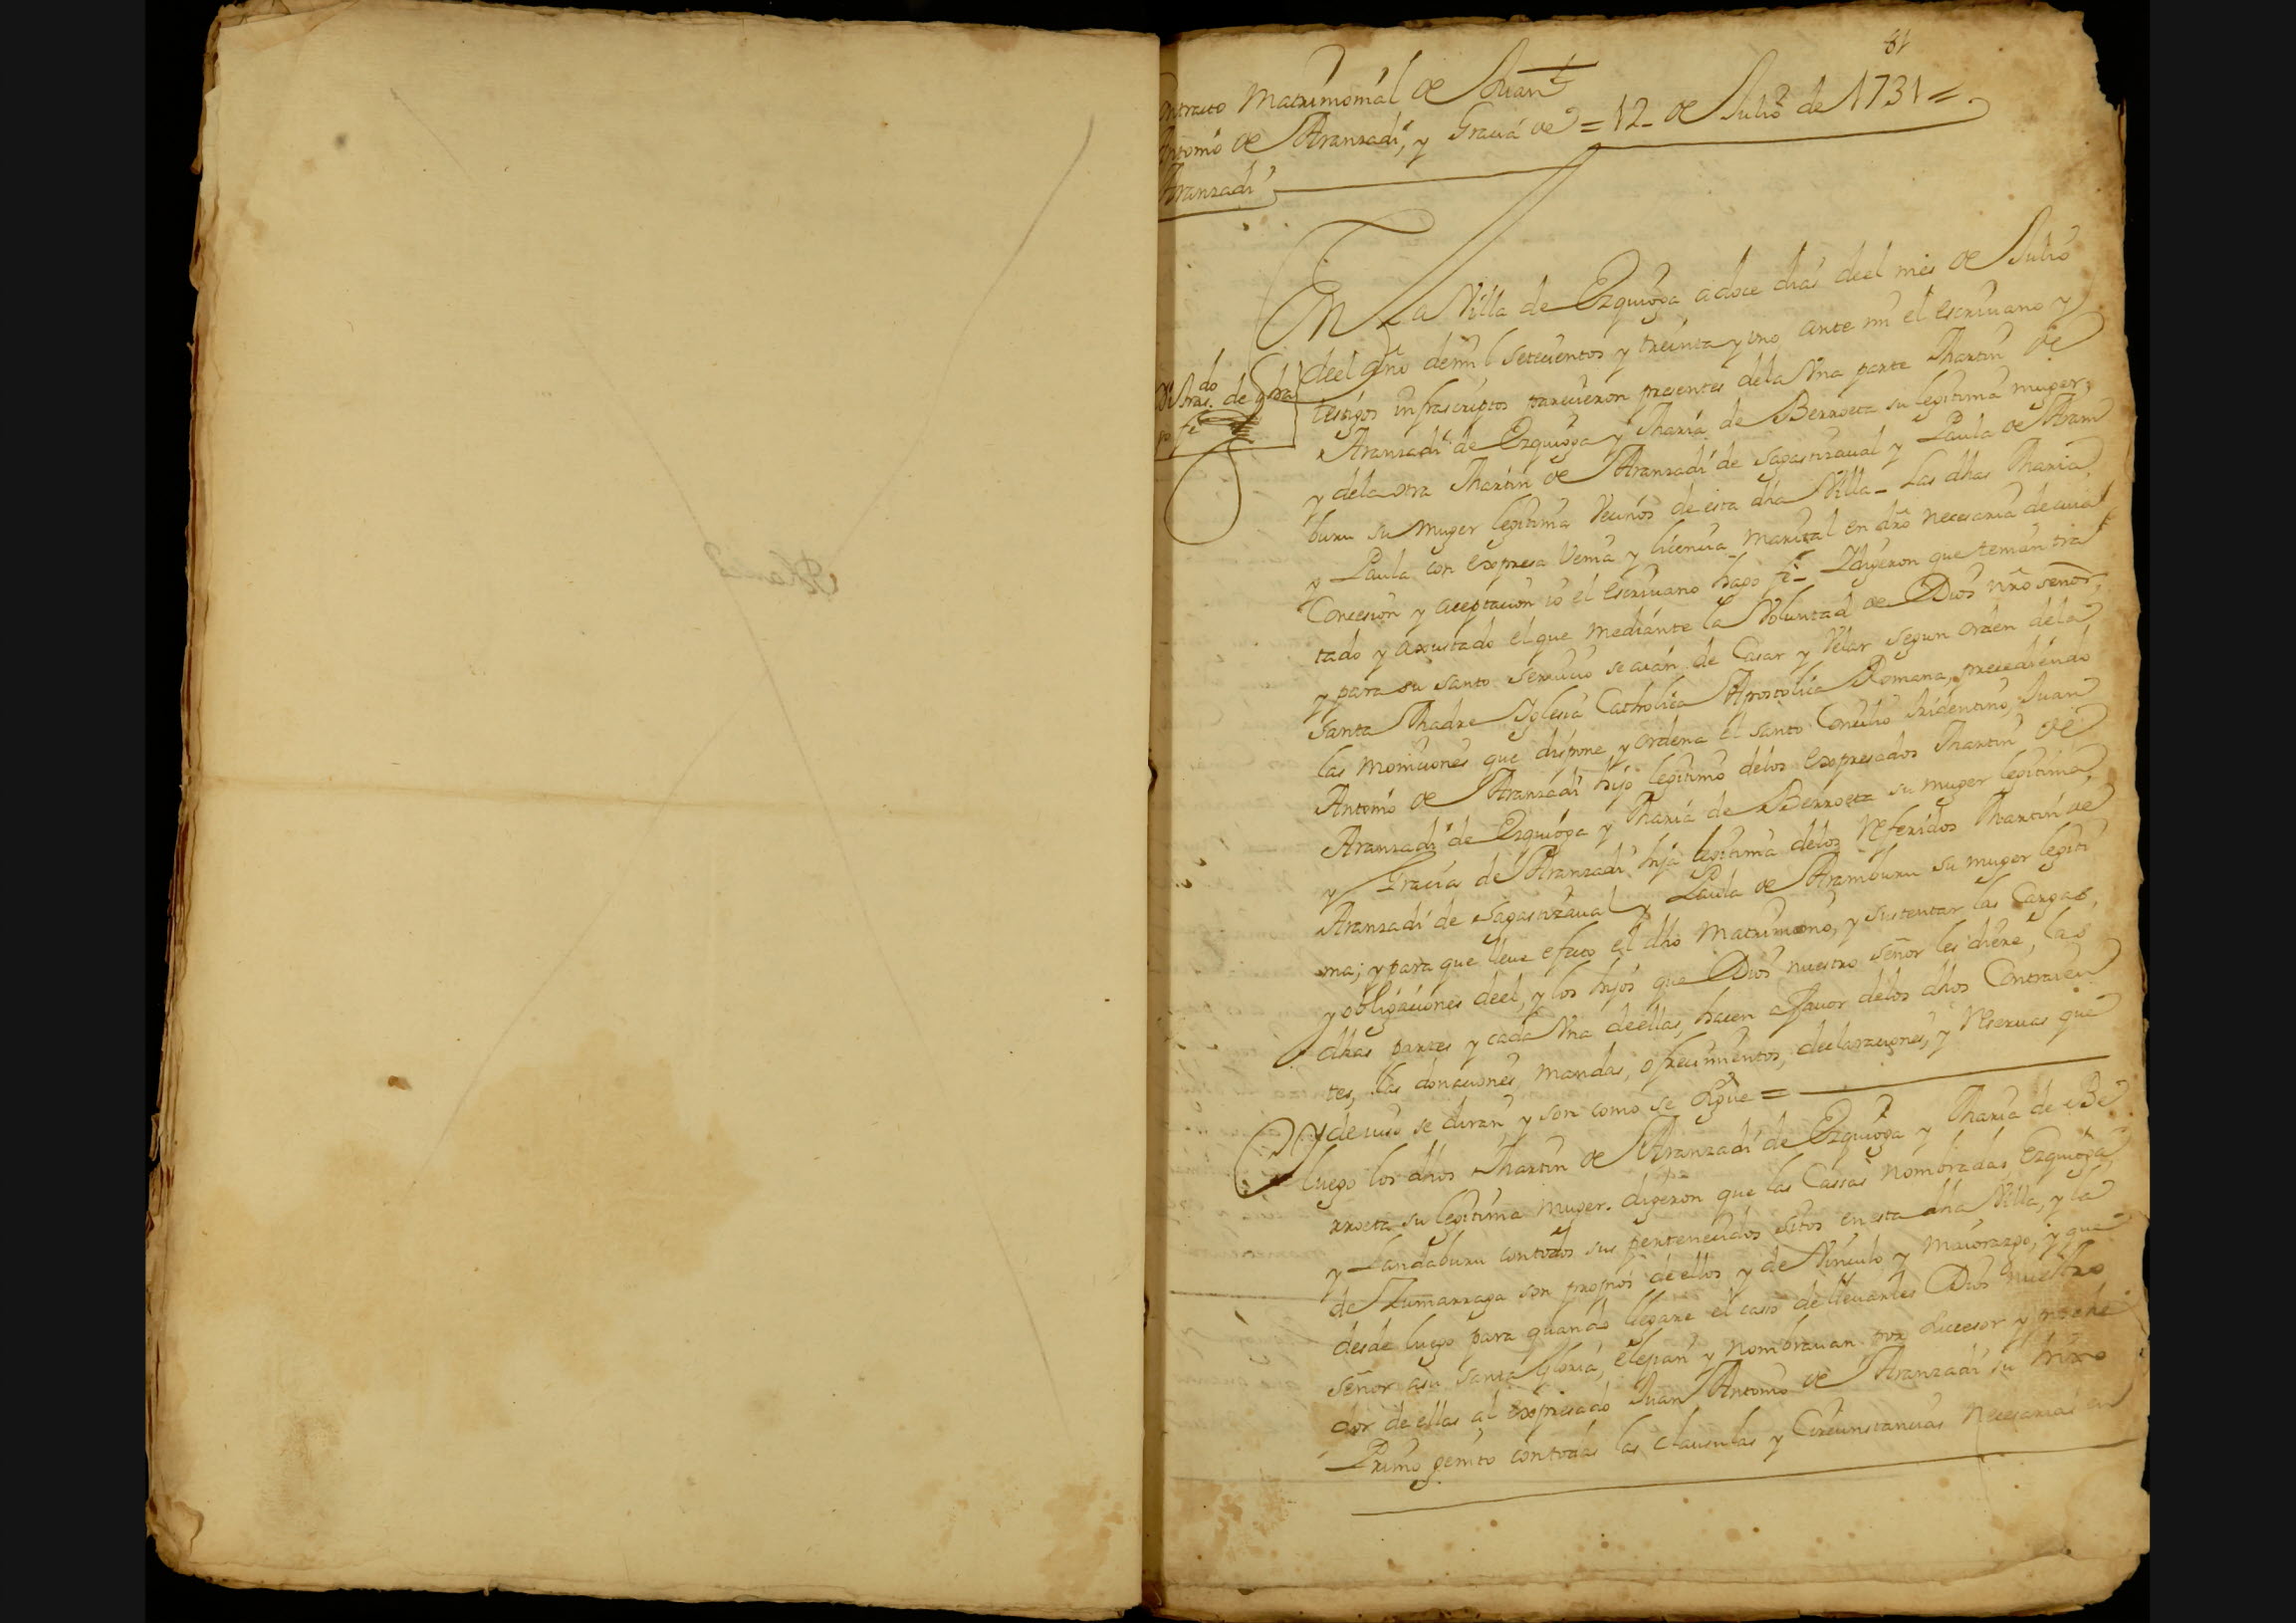 81
Contracto Matrimonial de Juan
Antonio de Aranzadi, y Gracia de = 12 - de Julio de 1731 =
Aranzadi
En La Villa de Ezquioga, a doce dias deel mes de Julio
deel año de mil Setecientos y treinta y uno, ante mi el escriuano y
testigos infrascriptos parecieron presentes dela Vna parte Martin de
Aranzadi de Ezquioga y Maria de Berroeta su legitima muger,
y dela otra Martin de Aranzadi de Sagastizaual y Paula de Aram
buru su muger legitima Vecinos de esta dha Villa - Las dhas Maria
y Paula con expresa Venia y licencia marital en dro necesaria de cuia
Concesion y aceptacion io el escriuano hago fe - Y digeron que tenian tra
tado y axustado el que mediante la Voluntad de Dios nro señor,
y para su santo seruicio se aian de Casar y Velar segun orden dela
Santa Madre Iglesia Catholica Apostolica Romana, precediendo
las moniciones que dispone y ordena el santo Concilio tridentino, Juan
Antonio de Aranzadi hijo legitimo delos expresados Martin de
Aranzadi de Ezquioga y Maria de Berroeta su muger legitima,
y Gracia de Aranzadi hija legitima delos referidos Martin de
Aranzadi de Sagastizaual y Paula de Aramburu su muger legiti
ma; y para que lleue efecto el dho Matrimonio, y sustentar las Cargas,
y obligaciones deel, y los hijos que Dios nuestro señor les diere, las
dhas partes y cada Vna deellas, hacen a fauor delos dhos Contraien
tes, las donaciones, mandas, ofrecimientos, declaraciones, y reseruas que
de iuso se diran y son como se sigue =
Y luego los dhos Martin de Aranzadi de Ezquioga y Maria de Be
rroeta su legitima muger. digeron que las Cassas nombradas Ezquioga,
y Landaburu con todos sus pertenecidos sitos en esta dha Villa, y la
de Zumarraga son propios deellos y de Vinculo y maiorazgo, y que
desde luego para quando llegare el caso de lleuarles Dios nuestro
señor asu santa Gloria, elegian y nombrauan por sucesor y
dor de ellas al expresado Juan Antonio de Aranzadi su hixo
Primo genito con todas las clausulas y Circunstancias necesarias en